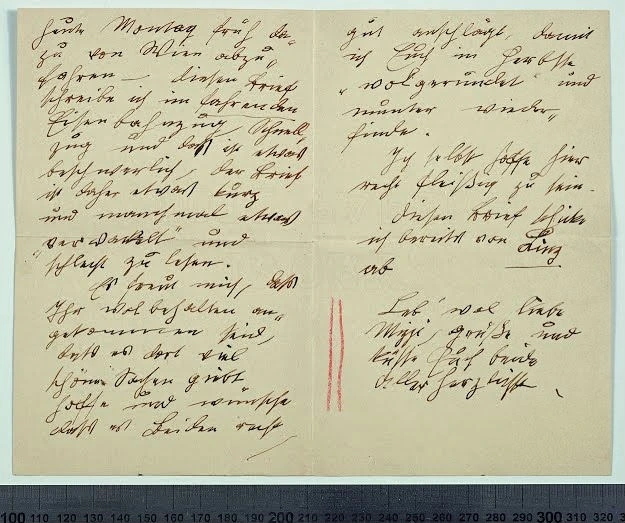 heute Montag früh da-
zu von Wien abzu-
fahren – diesen Brief
schreibe ich im fahrenden
Eisenbahnzug, Schnell-
zug und das ist etwas
beschwerlich, der Brief
ist daher etwas kurz
und manchmal etwas
"verwackelt" und
schlecht zu lesen.
Es freut mich, dass
Ihr wolbehalten an-
gekommen seid,
dass es dort viel
schöne Sachen giebt
hoffe und wünsche
dass es Beiden recht
gut anschlägt, damit
ich Euch im Herbste
"wolgerundet" und
munter wieder-
finde.
Ich selbst hoffe hier
recht fleißig zu sein.
Diesen Brief schicke
ich bereits von Linz
ab
Leb' wol liebe
grüße und
küsse Euch beide
allerherzlichst
100 110 120 130 140 150 160 170 180 190 200 210 220 230 240 250 260 270 280 290 300 310 320